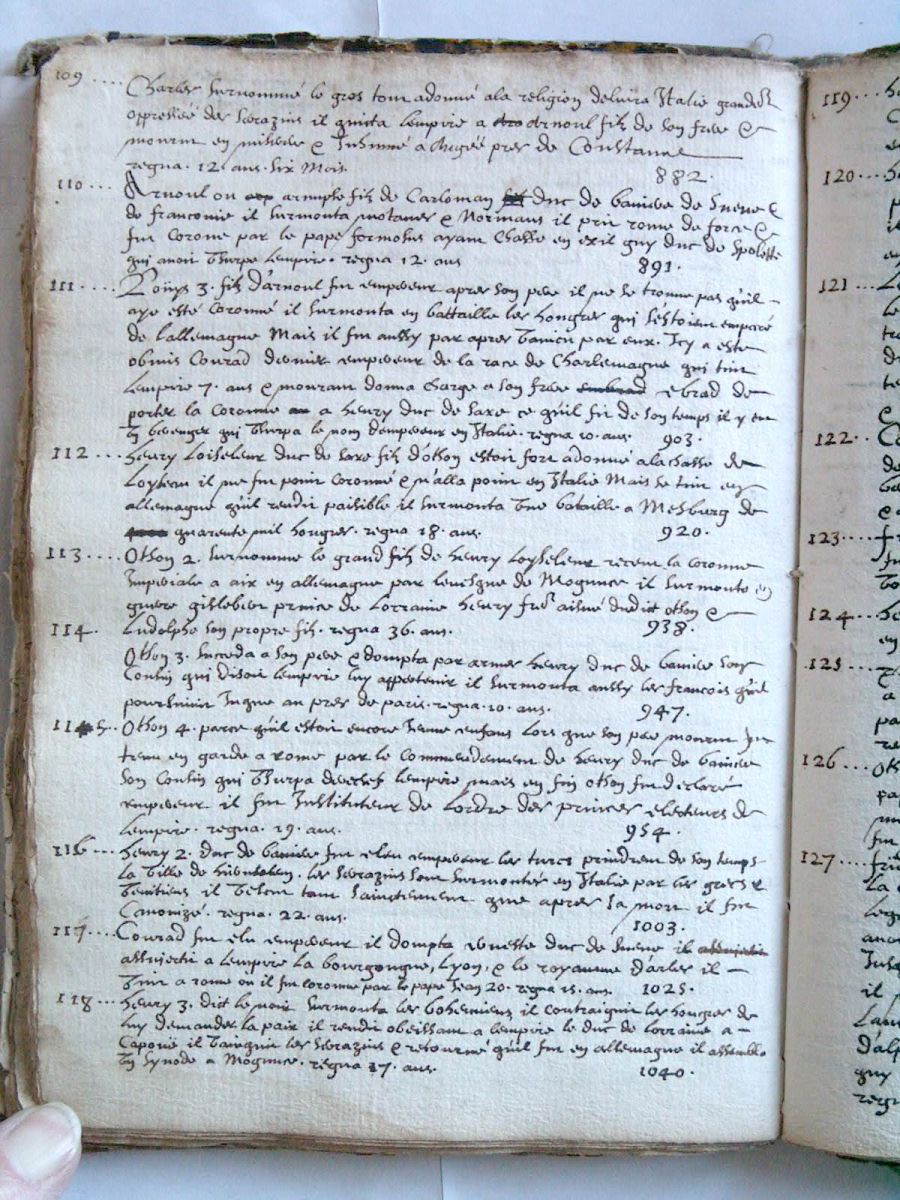 109 .... Charles surnommé le gros tout adonné a la religion delivra Italie grandemt
oppressée des Sarazins il quitta lempire a Arnoul filz de son frere &
mourut en misere & Inhumé a Augée pres de Constance
regna. 12. ans. six Mois. 882.
110 ... Arnoul ou arnulphe filz de Carloman duc de baviere de Sueve &
de franconie il surmonta & Normans il prit rome de force &
fut coroné par le pape formosus ayant chassé en exil guy duc de Spolette
qui avoit usurpé lempire. regna 12. ans 891.
111 ... Loüys 3. filz d'arnoul fut empereur apres son pere il ne se trouve pas qu'il
aye esté coronné il surmonta en battaille les hongres qui s'estoient emparé
de l'allemagne Mais il fut aussy par apres vaincu par eux. Icy a esté
obmis Conrad dernier empereur de la race de Charlemagne qui tint
lempire 7. ans & mourant donna charge a son frere ebrad de
porter la coronne a henry duc de saxe ce qu'il fit de son temps il y eut
un berenger qui usurpa le nom d'empereur en Italie. regna 10. ans. 903.
112 ... henry loiseleur duc de saxe filz d'othon estoit fort adonné a la chasse de
loyseau il ne fut point coronné & n'alla point en Italie Mais se tint en
allemagne qu'il rendit paisible il surmonta une bataille a Mesburg de
quarente mil hongres. regna 18. ans. 920.
113 .... Othon 2. surnomme le grand filz de henry loyseleur receut la coronne
Imperiale a aix en allemagne par levesque de Mogunce il surmonta en
guere gislebert prince de Lorraine henry frer aisné dudict othon &
114. Ludolphe son propre filz. regna 36. ans. 938.
Othon 3. succeda a son pere & dompta par armes henry duc de baviere son
cousin qui disoit lempire luy appertenir il surmonta aussy les francois qu'il
poursuivit Iusque au pres de paris. regna. 10. ans. 947.
115 .. Othon 4. parce qu'il estoit encore Ieune enfant lors que son pere mourut fut
tenu en garde a rome par le commendement de henry duc de baviere
son cousin qui usurpa derechef lempire mais en fin othon fut declaré
empereur il fut Instituteur de lordre des princes electeurs de
lempire. regna. 19. ans. 954.
116 ... henry 2. duc de baviere fut eleu empereur les turcs prindrent de son temps
la ville de les Sarazins sont surmontés en Italie par les grecs &
venitiens il vesCut tant sainctement que apres sa mort il fut
Canonizé. regna. 22. ans. 1003.
117 .... Conrad fut elu empereur il dompta erneste duc de sueve il
assuiecti a lempire la bourgongne, Lyon, & le royaume d'arles il
vint a rome ou il fut coronné par le pape Iean 20. regna 15. ans. 1025.
118 ... henry 3. dict le noir surmonta les bohemiens il contraignit les hongres de
luy demander la paix il rendit obeissant a lempire le duc de lorraine a
Capoue il vainquit les Sarazins & retourné qu'il fut en allemagne il assembla
un synode a Mogunce. regna 17. ans. 1040.
119 ....
120 ...
121 ...
122 ..
123 ...
124 ...
125 ...
126 ...
127 ...